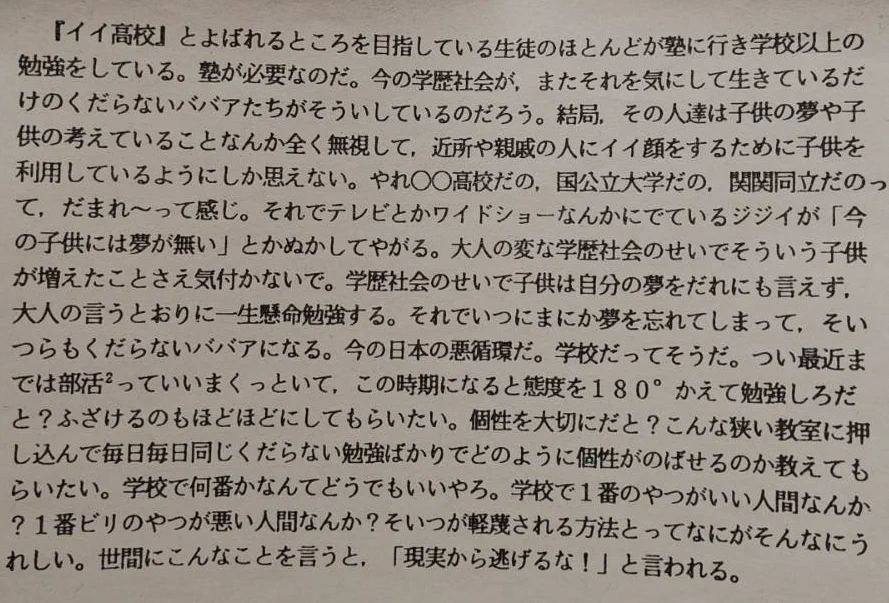 『イイ高校』とよばれるところを目指している生徒のほとんどが塾に行き学校以上の
勉強をしている。塾が必要なのだ。今の学歴社会が，またそれを気にして生きているだ
けのくだらないババアたちがそういしているのだろう。結局，その人達は子供の夢や子
供の考えていることなんか全く無視して，近所や親戚の人にイイ顔をするために子供を
利用しているようにしか思えない。やれ〇〇高校だの，国公立大学だの，関関同立だのっ
て，だまれ〜って感じ。それでテレビとかワイドショーなんかにでているジジイが「今
の子供には夢が無い」とかぬかしてやがる。大人の変な学歴社会のせいでそういう子供
が増えたことさえ気付かないで。学歴社会のせいで子供は自分の夢をだれにも言えず，
大人の言うとおりに一生懸命勉強する。それでいつにまにか夢を忘れてしまって，そい
つらもくだらないババアになる。今の日本の悪循環だ。学校だってそうだ。つい最近ま
では部活²っていいまくっといて，この時期になると態度を１８０°かえて勉強しろだ
と？ふざけるのもほどほどにしてもらいたい。個性を大切にだと？こんな狭い教室に押
し込んで毎日毎日同じくだらない勉強ばかりでどのように個性がのばせるのか教えても
らいたい。学校で何番かなんてどうでもいいやろ。学校で１番のやつがいい人間なんか
？１番ビリのやつが悪い人間なんか？そいつが軽蔑される方法とってなにがそんなにう
れしい。世間にこんなことを言うと，「現実から逃げるな！」と言われる。